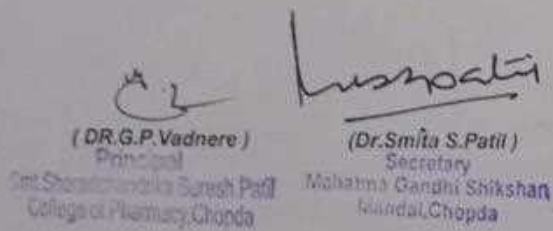 ( DR.G.P.Vadnere )
Principal
Smt.Sharadchandrika Suresh Patil
College of Pharmacy,Chopda
(Dr.Smita S.Patil )
Secretary
Mahatma Gandhi Shikshan
Mandal,Chopda